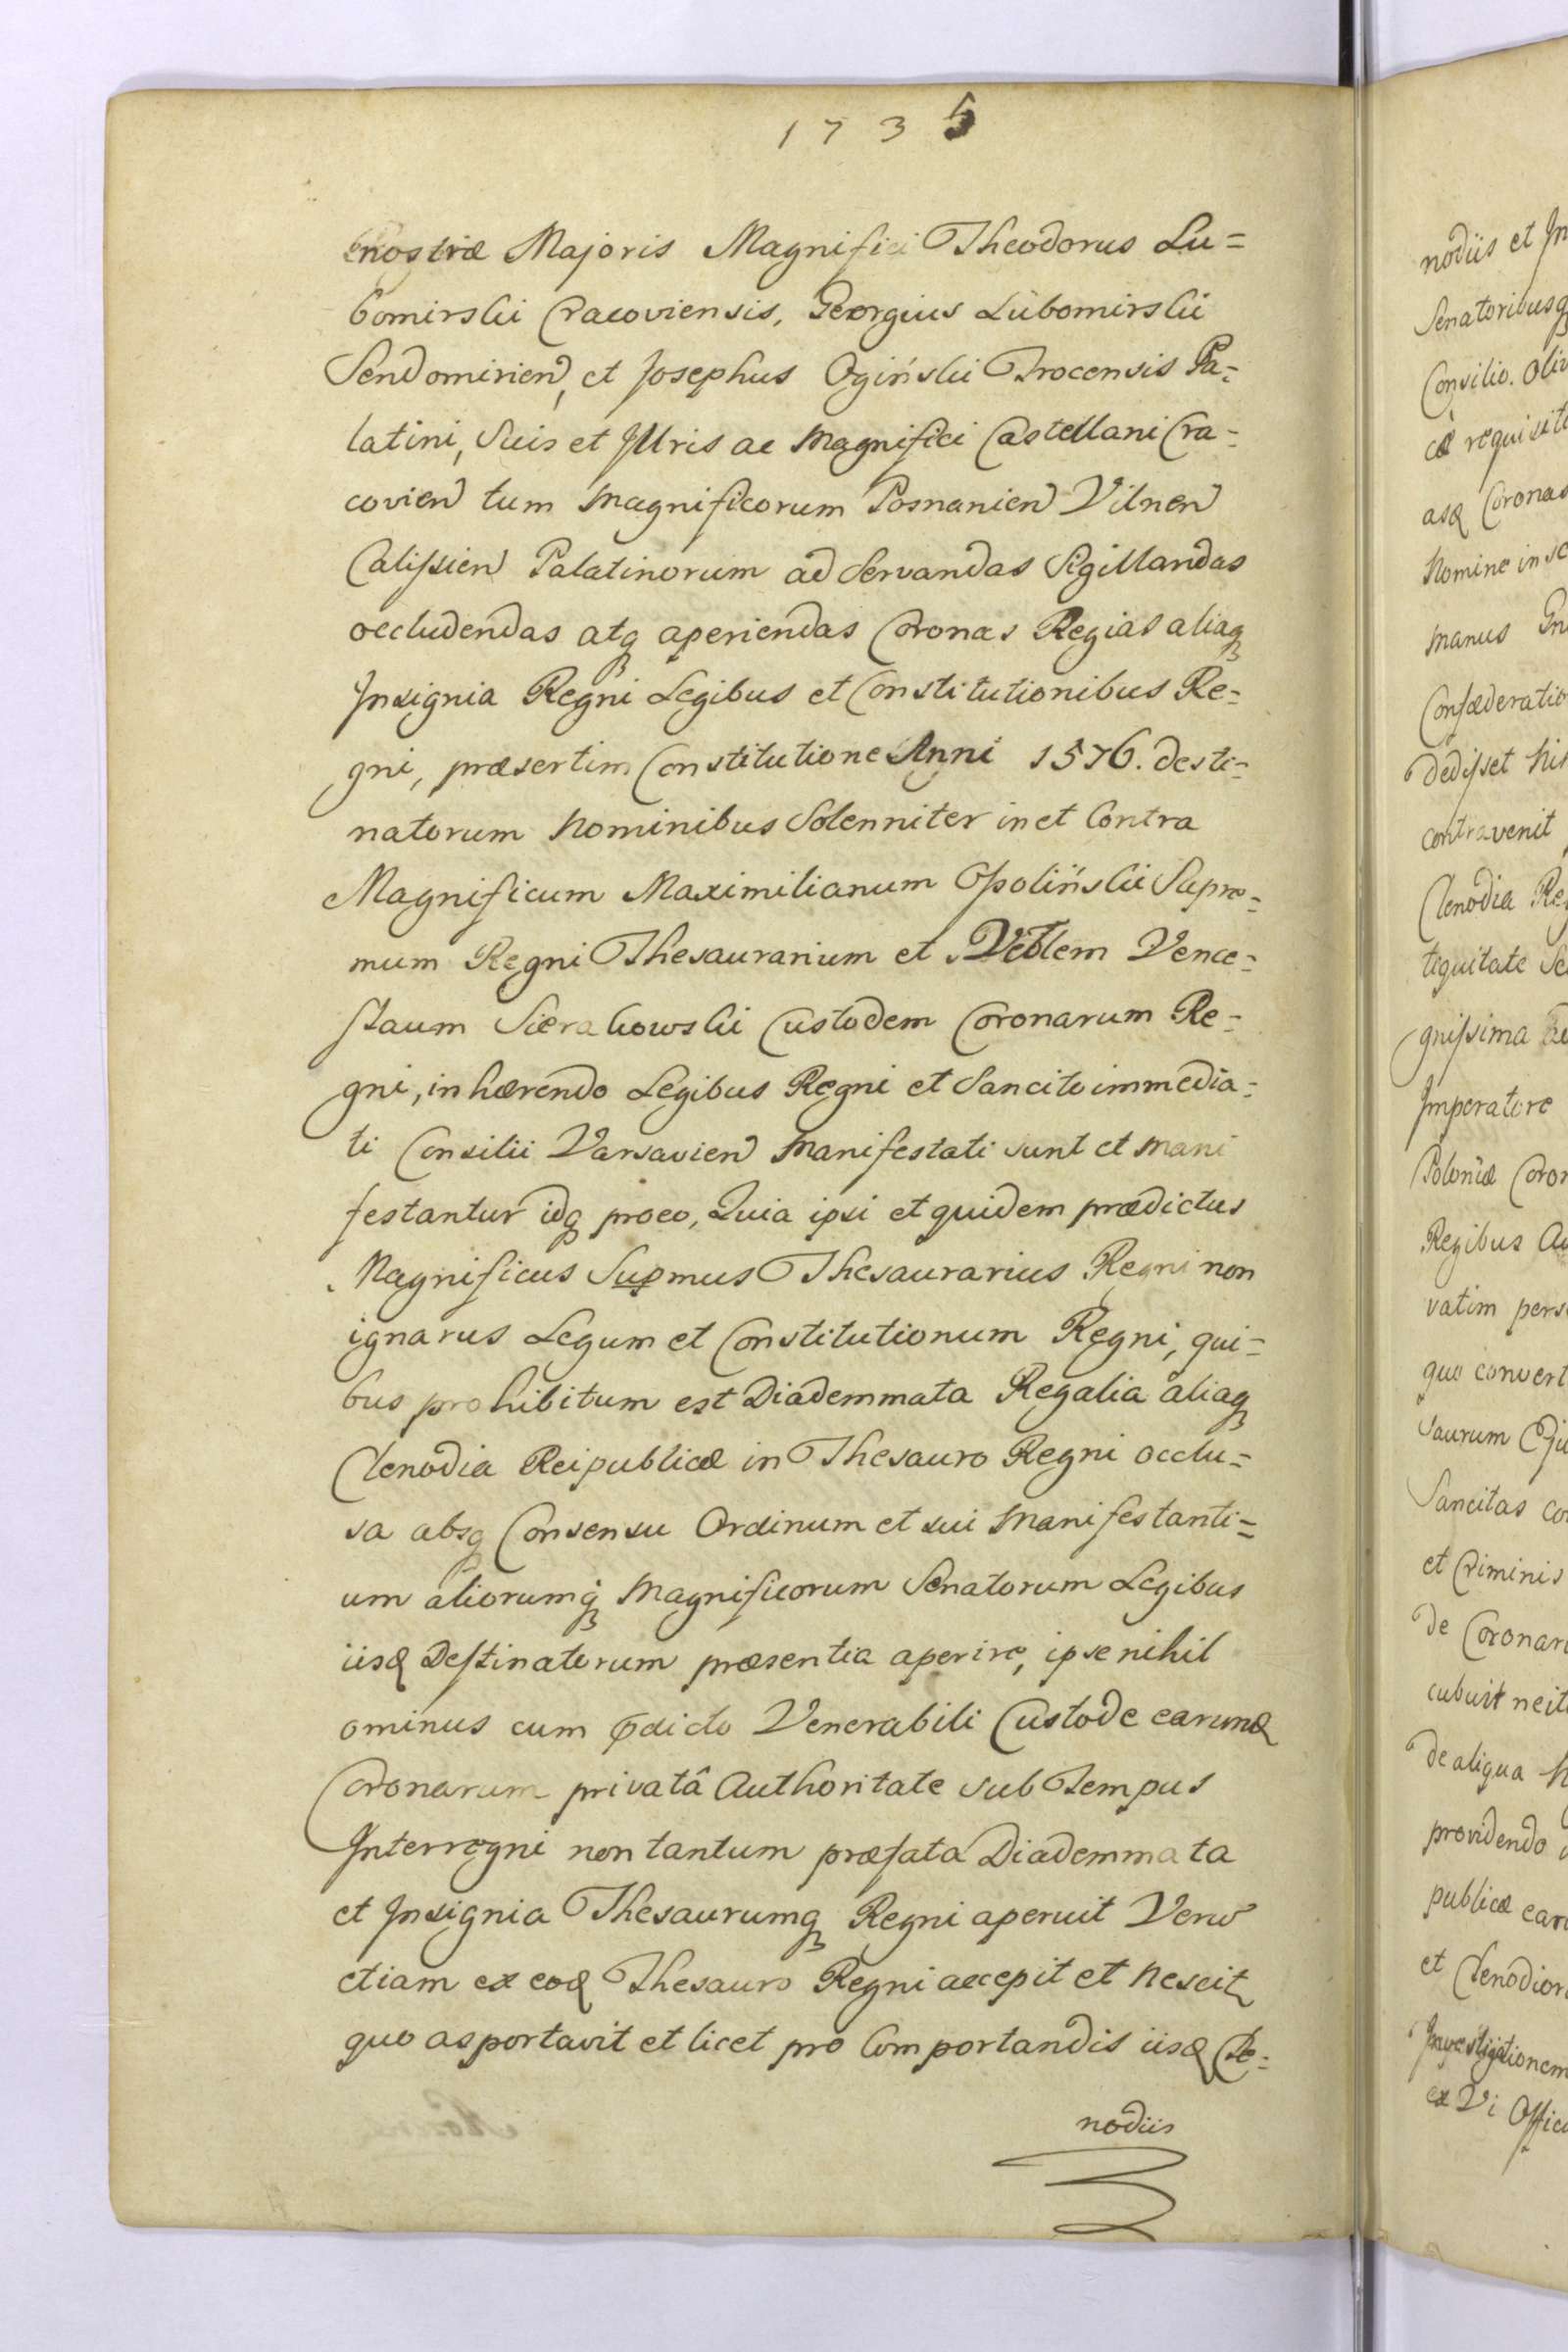 1735
nostræ Majoris Magnifici Theodorus Lu=
bomirski Cracoviensis, Georgius Lubomirski
Sendomirien, et Josephus Ogiński Trocensis Pa=
latini, Suis et Illris ac Magnifici Castellani Cra=
covien tum Magnificorum Posnanien Vilnen
Calissien Palatinorum ad Servandas Sigillandas
occludendas atq aperiendas Coronas Regias aliaq
Insignia Regni Legibus et Constitutionibus Re=
gni, præsertim Constitutione Anni 1576. desti=
natorum Nominibus Solenniter in et Contra
Magnificum Maximilianum Ossoliński Supre=
mum Regni Thesaurarium et Vēblem Vence=
slaum Sierakowski Custodem Coronarum Re=
gni, inhærendo Legibus Regni et Sancito immedia=
ti Consilii Varsavien Manifestati sunt et mani
festantur idq proeo, Quia ipsi et quidem prædictus
Magnificus Supmus Thesaurarius Regni non
ignarus Legum et Constitutionum Regni, qui=
bus prohibitum est Diademmata Regalia aliaq
Clenodia Reipublicæ in Thesauro Regni occlu=
sa absq Consensu Ordinum et sui Manifestanti=
um aliorumq Magnificorum Senatorum Legibus
iisd Destinatorum præsentia aperire, ipse nihil
ominus cum pdicto Venerabili Custode earund
Coronarum privatâ Authoritate sub Tempus
Interregni non tantum præfata Diademmata
et Insignia Thesaurumq Regni aperuit Verū
etiam ex eod Thesauro Regni accepit et Nescit
quo asportavit et licet pro Comportandis iisd Cle=
nodiis
nodiis et In
Senatoribusq
Consilio. Oliv
cæ requisit
asd Coronas
Nomine in
manus
Confæderatio
dedisset
contravenit
Clenodia Reg
tiquitate Se
gnissima
Imperatore
Poloniæ Coron
Regibus
vatim pers
quo convert
saurum
Sancitas co
et Criminis
de Coronar
cubuit
de aliqua
providendo
publicæ ear
et Clenodior
Investigationem
ex Vi Offic